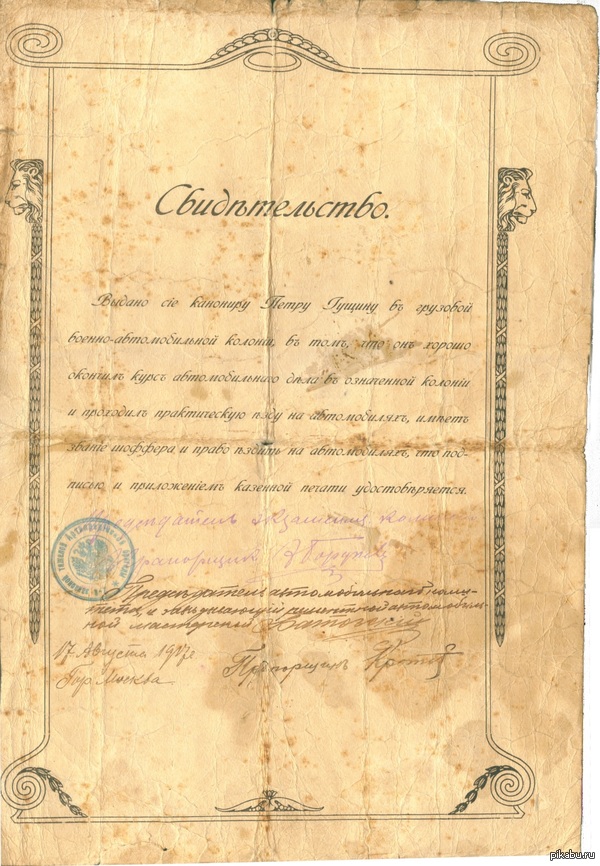 Свидѣтельство.
Выдано сіе канониру Петру Гущину въ грузовой
военно-автомобильной колоніи, въ томъ, что онъ хорошо
окончилъ курсъ автомобильнаго дѣла въ означенной колоніи
и проходилъ практическую ѣзду на автомобиляхъ, имѣетъ
званіе шоффера и право ѣздить на автомобиляхъ, что под-
писью и приложеніемъ казенной печати удостовѣряется.
Предсѣдатель
Прапорщикъ
Предсѣдатель автомобильнаго коми-
тета, и завѣдующій ремонтной автомобиль-
ной мастерской
17 Августа 1917г
Прапорщикъ Кротов
Гор. Москва
pikabu.ru